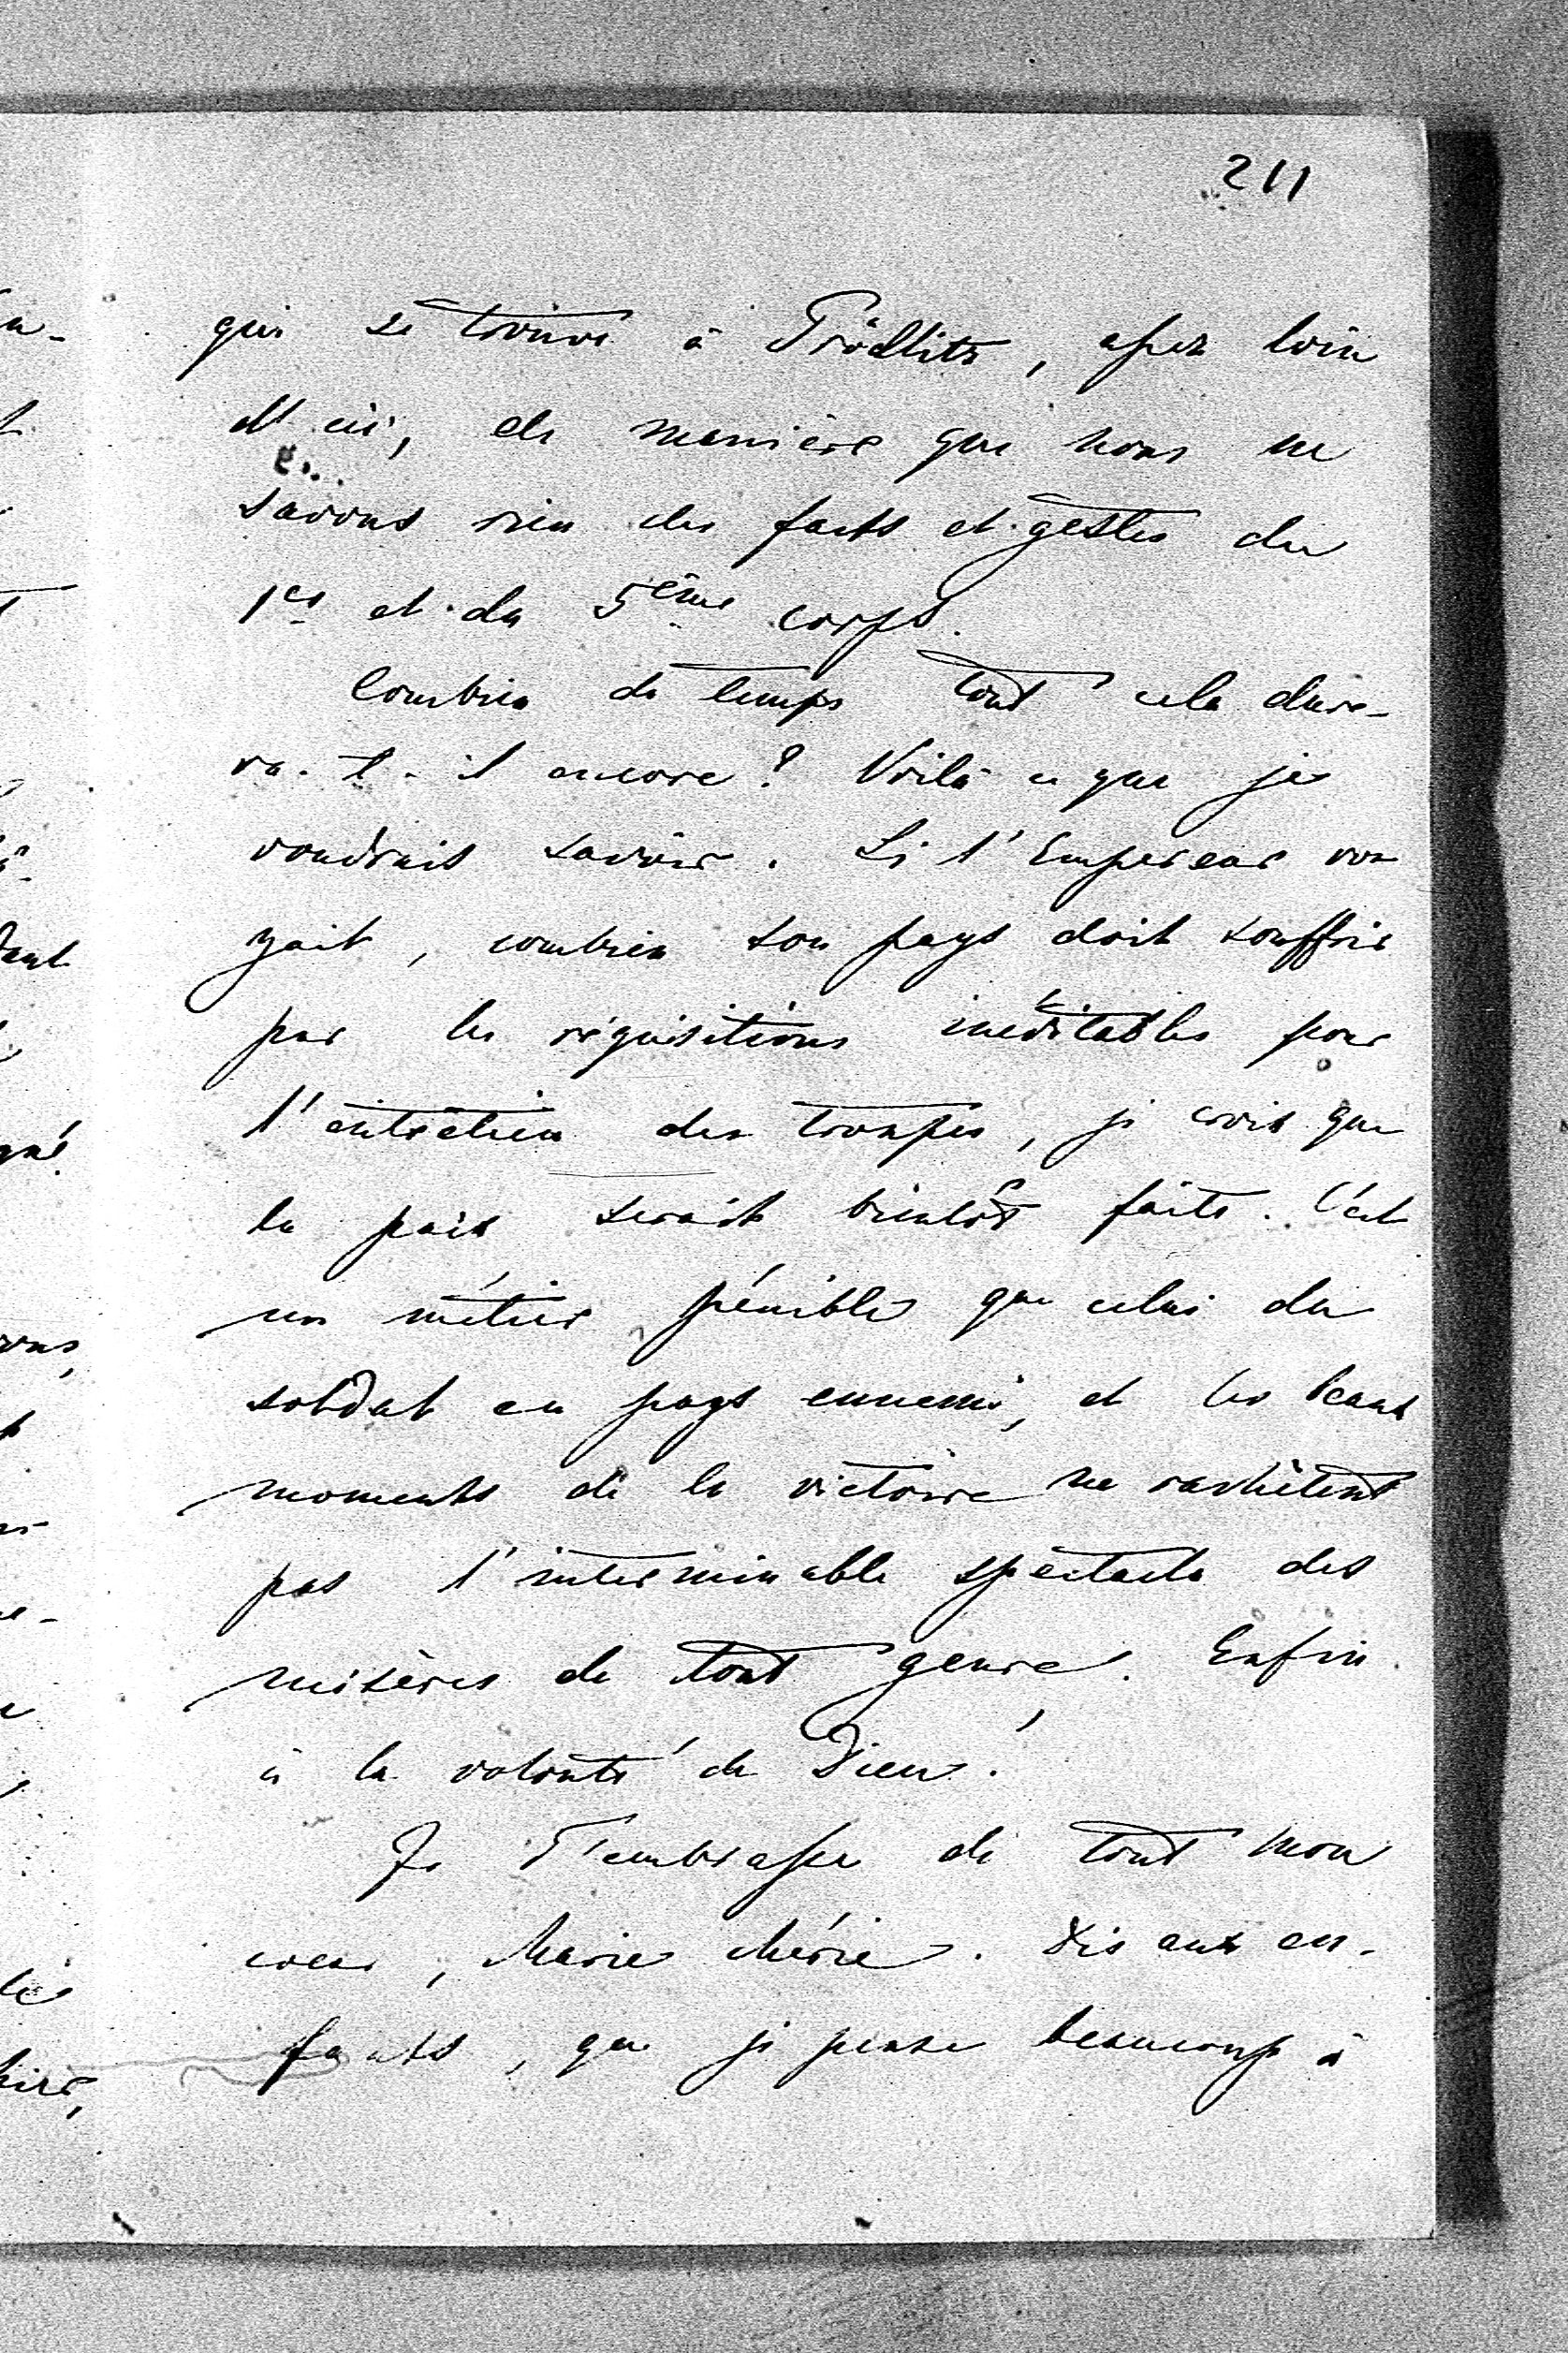 211
qui se trouve à Prödlitz, assez loin
d'ici, de manière que nous ne
savons rien des faits et gestes du
1er et du 5ème corps.
Combien de temps tout cela dure-
ra-t-il encore? Voilà ce que je
voudrais savoir. Si l'Empereur vo-
yait, combien son pays doit souffrir
par les réquisitions inévitables pour
l'entretien des troupes, je crois que
la paix serait bientôt faite. C'est
un métier pénible que celui du
soldat en pays ennemi, et les beaux
moments de la victoire ne rachètent
pas l'interminable spectacle des
misères de tout genre. Enfin
à la volonté de Dieu!
Je t'embrasse de tout mon
coeur, Marie chérie. Dis aux en-
fants, que je pense beaucoup à